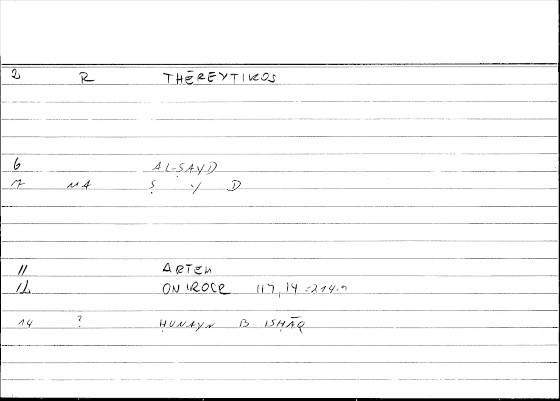 2 R THĒREYTIKOS
6 AL-ṢAYD
7 MA Ṣ Y D
11 ARTEM
12 ONIROCR 117,14 = 214.9
14 ? ḤUNAYN B. ISḤĀQ